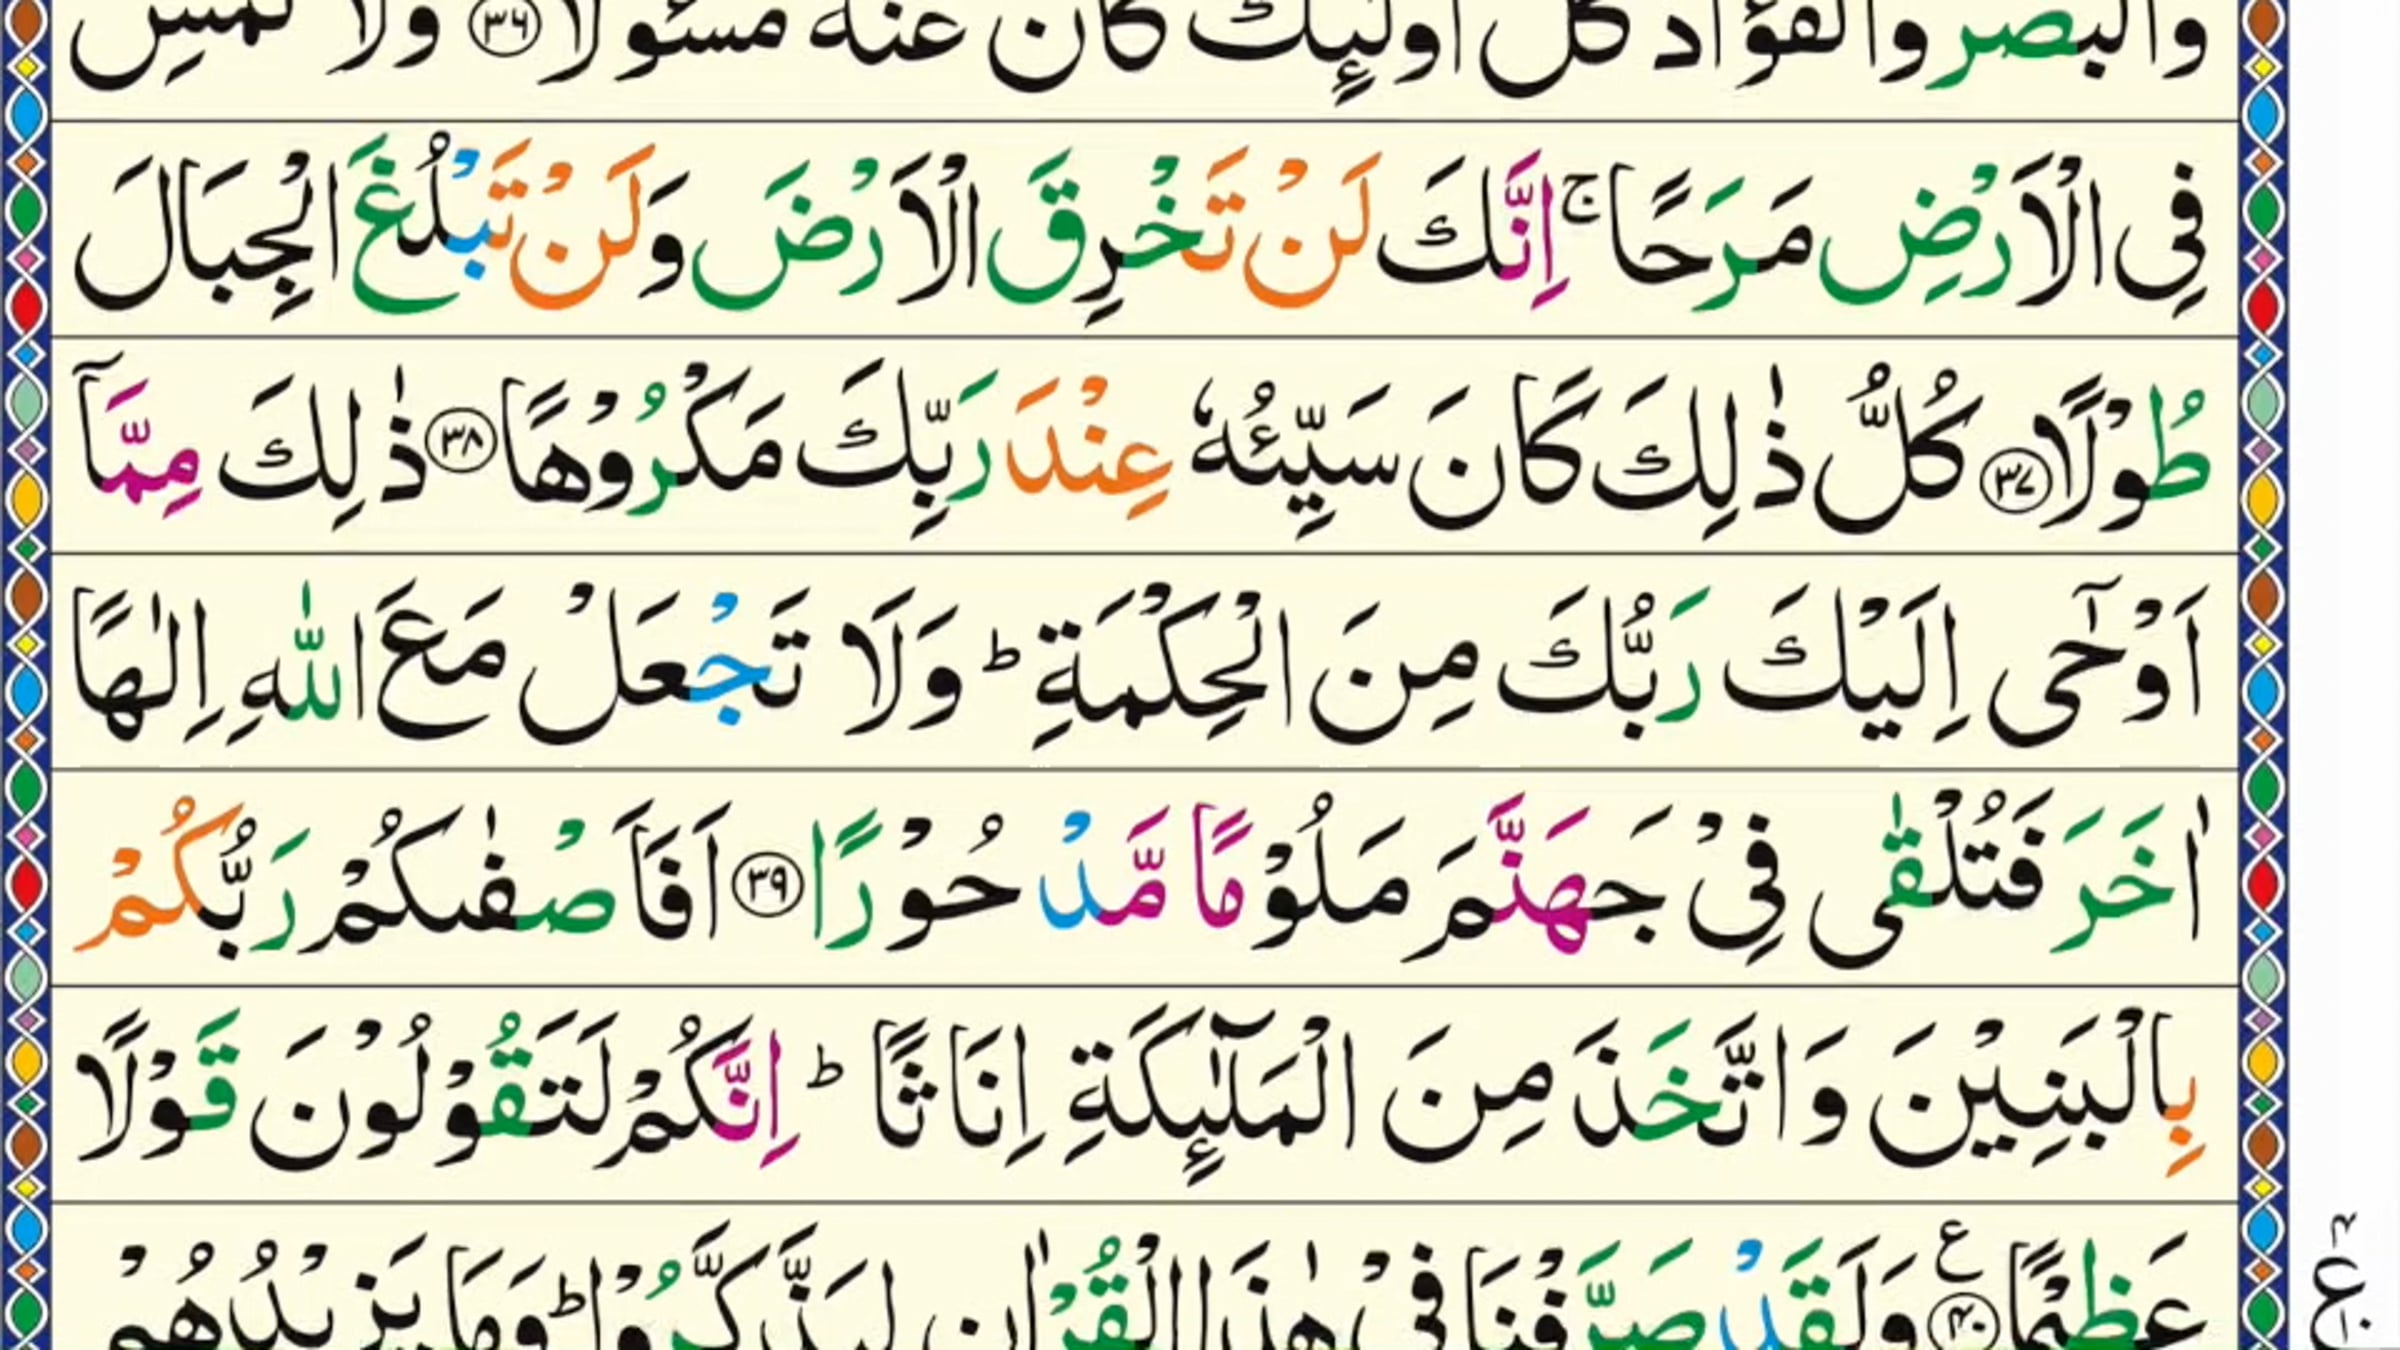 وَالْبَصَرَ وَالْفُؤَادَ كُلُّ اُولٰٓئِكَ كَانَ عَنْهُ مَسْئُوْلًا ۝۳۶ وَلَا تَمْشِ
فِی الْاَرْضِ مَرَحًا ۚ اِنَّكَ لَنْ تَخْرِقَ الْاَرْضَ وَلَنْ تَبْلُغَ الْجِبَالَ
طُوْلًا ۝۳۷ كُلُّ ذٰلِكَ كَانَ سَیِّئُهٗ عِنْدَ رَبِّكَ مَكْرُوْهًا ۝۳۸ ذٰلِكَ مِمَّاۤ
اَوْحٰۤی اِلَیْكَ رَبُّكَ مِنَ الْحِكْمَةِ ؕ وَلَا تَجْعَلْ مَعَ اللّٰهِ اِلٰهًا
اٰخَرَ فَتُلْقٰی فِیْ جَهَنَّمَ مَلُوْمًا مَّدْحُوْرًا ۝۳۹ اَفَاَصْفٰىكُمْ رَبُّكُمْ
بِالْبَنِیْنَ وَاتَّخَذَ مِنَ الْمَلٰٓئِكَةِ اِنَاثًا ؕ اِنَّكُمْ لَتَقُوْلُوْنَ قَوْلًا
عَظِیْمًا ۝۴۰ ع وَلَقَدْ صَرَّفْنَا فِیْ هٰذَا الْقُرْاٰنِ لِیَذَّكَّرُوْا ؕ وَمَا یَزِیْدُهُمْ
۴
ع
۱۰